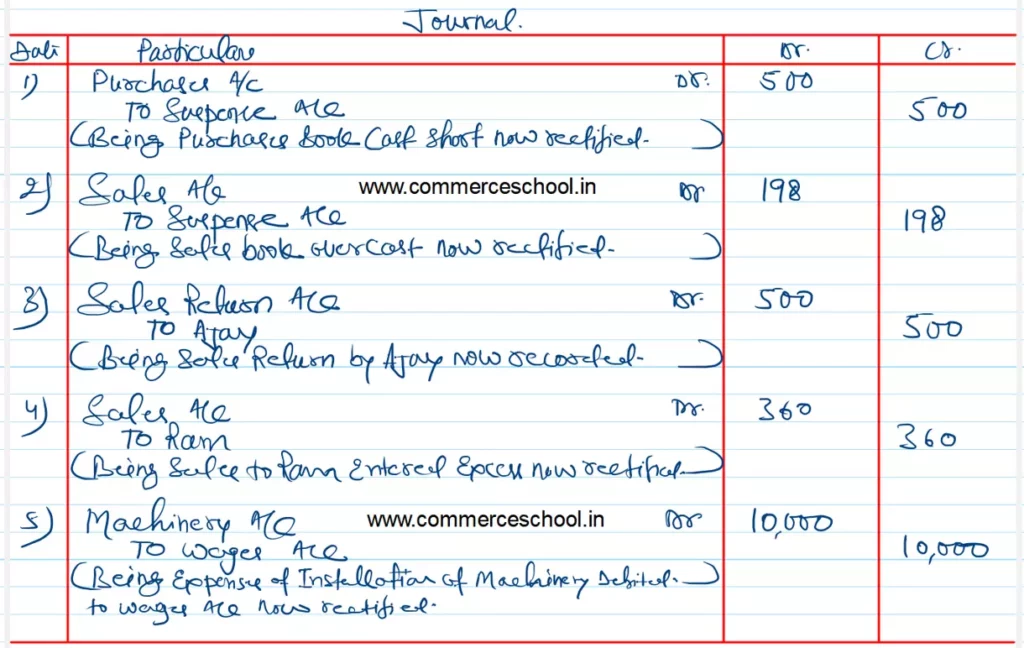 Journal.
Date Particulars Dr. Cr.
1) Purchases A/c Dr. 500
To Suspence A/c 500
(Being Purchases book Cast short now rectified.)
2) Sales A/c www.commerceschool.in Dr 198
To Suspense A/c 198
(Being Sales book overcast now rectified.)
3) Sales Return A/c Dr. 500
To Ajay 500
(Being Sales Return by Ajay now recorded.)
4) Sales A/c Dr. 360
To Ram 360
(Being Sales to Ram Entered Excess now rectified.)
5) Machinery A/c www.commerceschool.in Dr 10,000
To wages A/c 10,000
(Being Expenses of Installation of Machinery Debited.)
to wages A/c now rectified.